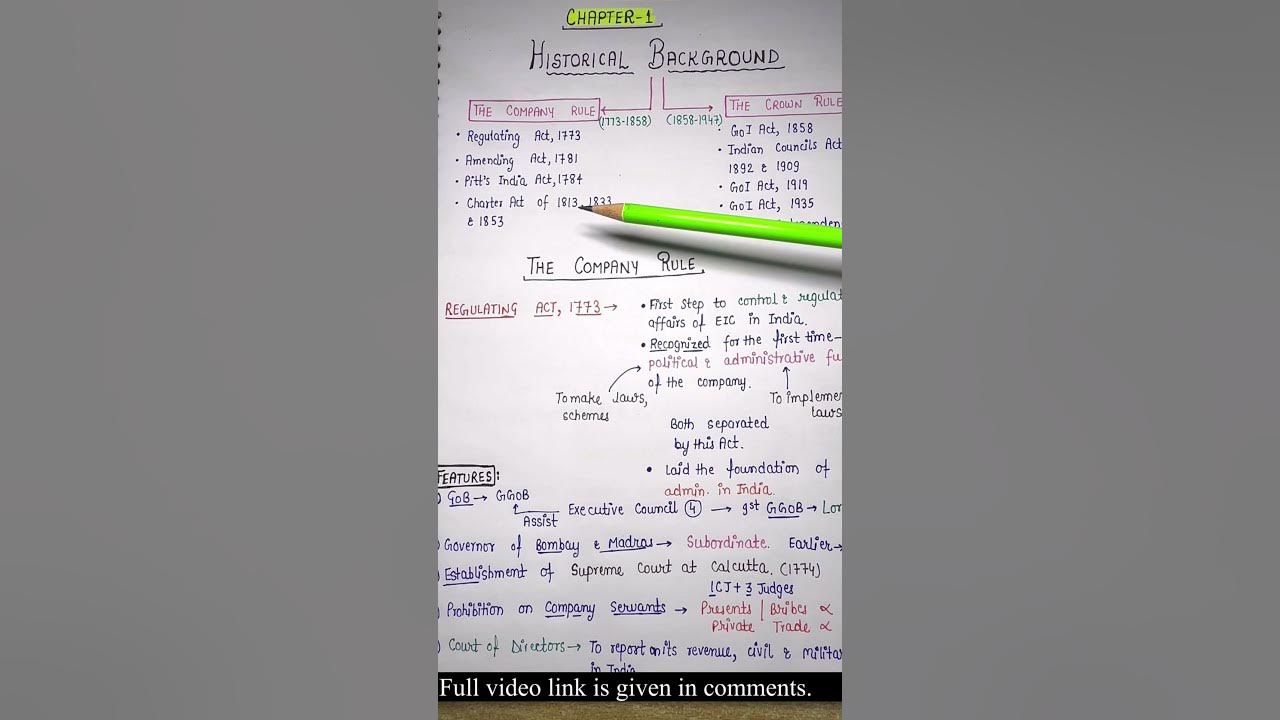 CHAPTER-1
HISTORICAL BACKGROUND
THE COMPANY RULE
(1773-1858)
(1858-1947)
THE CROWN RULE
• Regulating Act, 1773
• Amending Act, 1781
• Pitt's India Act, 1784
• Charter Act of 1813, 1833
& 1853
• GoI Act, 1858
• Indian Councils Act
1892 & 1909
• GoI Act, 1919
• GoI Act, 1935
THE COMPANY RULE
REGULATING ACT, 1773 →
• First step to control & regulat
affairs of EIC in India.
• Recognized for the first time-
political & administrative fu
of the company.
To make laws,
schemes
To implemen
laws
Both separated
by this Act.
• Laid the foundation of
admin. in India.
FEATURES:
) GoB → GGOB
Assist
Executive Council 4 → 1st GGOB → Lor
) Governor of Bombay & Madras → Subordinate. Earlier →
) Establishment of Supreme Court at Calcutta. (1774)
1CJ + 3 Judges
) Prohibition on Company Servants → Presents | Bribes ∝
Private Trade ∝
) Court of Directors → To report on its revenue, civil & milita
in India
Full video link is given in comments.